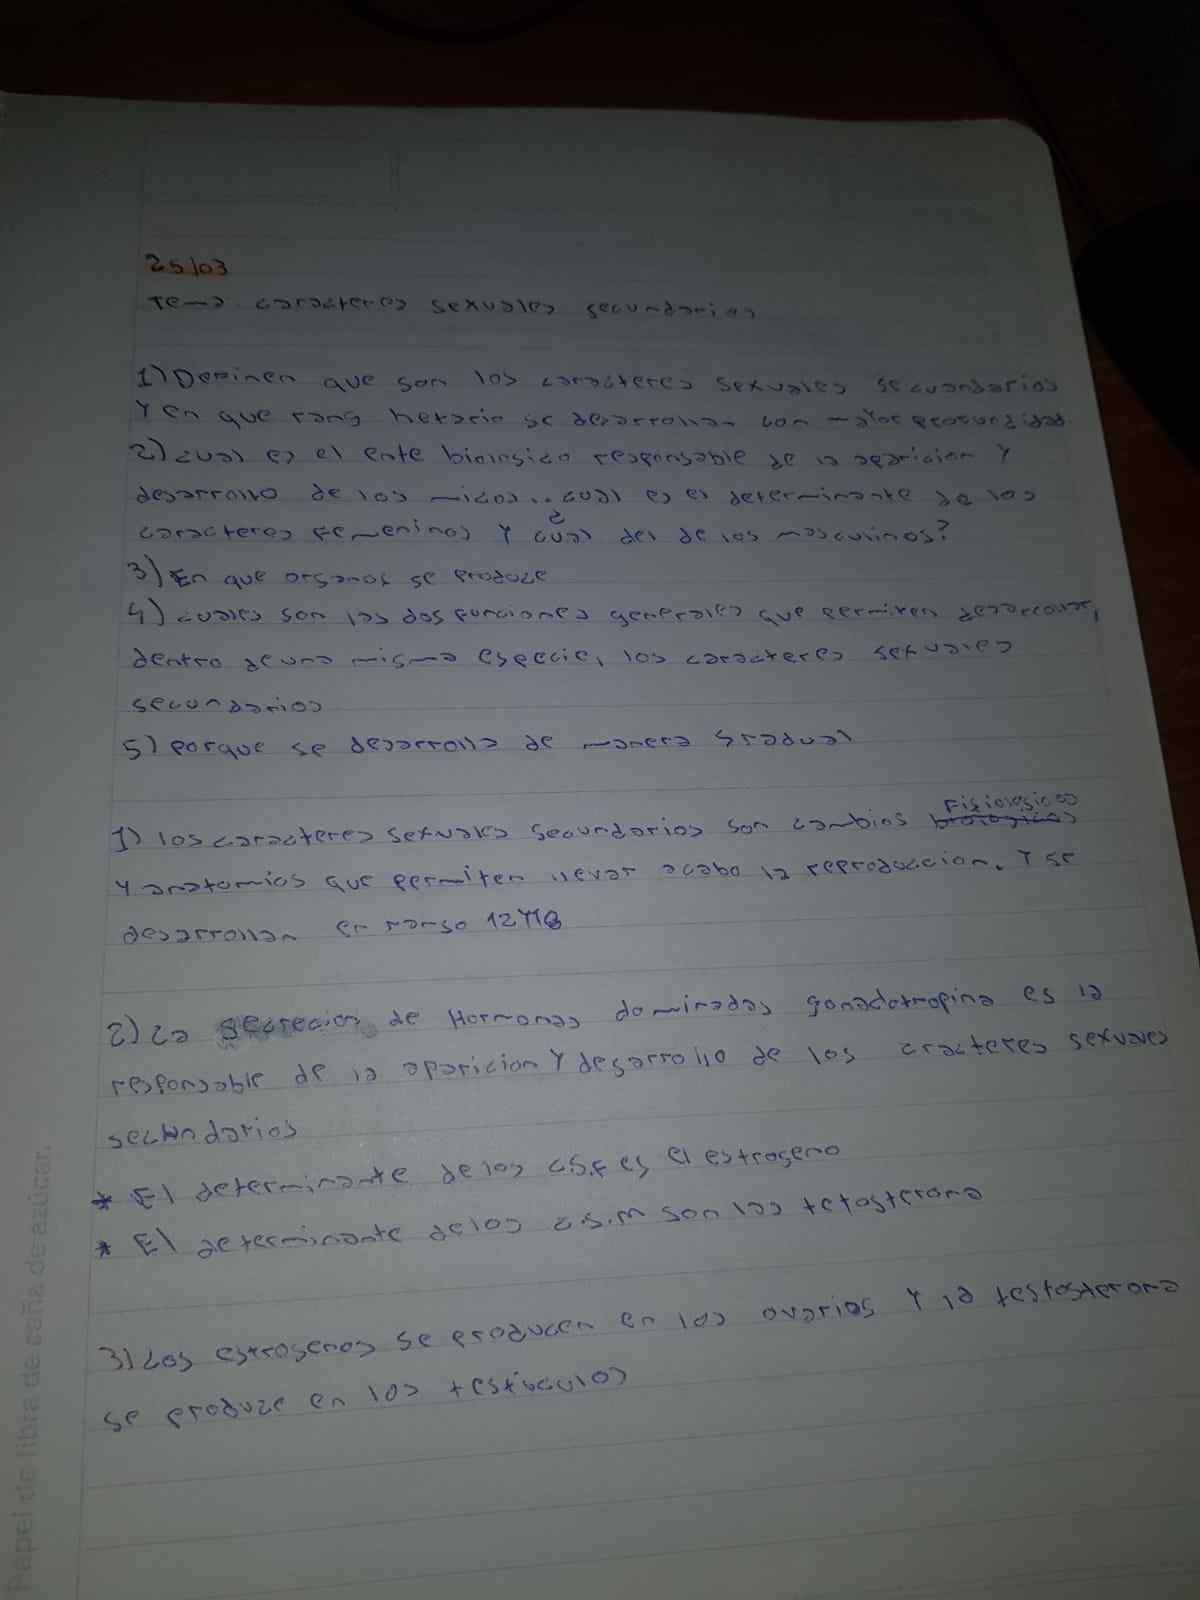 25/03
Tema caracteres sexuales secundarios
1) Definen que son los caracteres sexuales secuandarios
Y en que rang hetario se desarrollan con mayor profundidad.
2) cual es el ente biologico responsable de la aparicion Y
desarrollo de los micos.. cual es el determinante de los
caracteres femeninos Y ¿cual del de los masculinos?
3) En que organos se produce
4) cuales son las dos funciones generales que permiten desarrollar,
dentro de una misma especie, los caracteres sexuales
secundarios
5) porque se desarrolla de manera gradual
1) los caracteres sexuales secundarios son cambios biologicos Fisiologicos
Y anatomios que permiten llevar acabo la reproduccion. Y se
desarrollan en rango 12Y18
2) La secrecion de Hormonas dominadas gonadotropina es la
responsable de la aparicion Y desarrollo de los cracteres sexuales
secundarios
* El determinante de los C.S.F es el estrogeno
* El determinante de los C.S.M son las tetosterona
3) Los estrogenos se producen en los ovarios Y la testosterona
se produze en los testiculos
Papel de fibra de caña de azúcar.